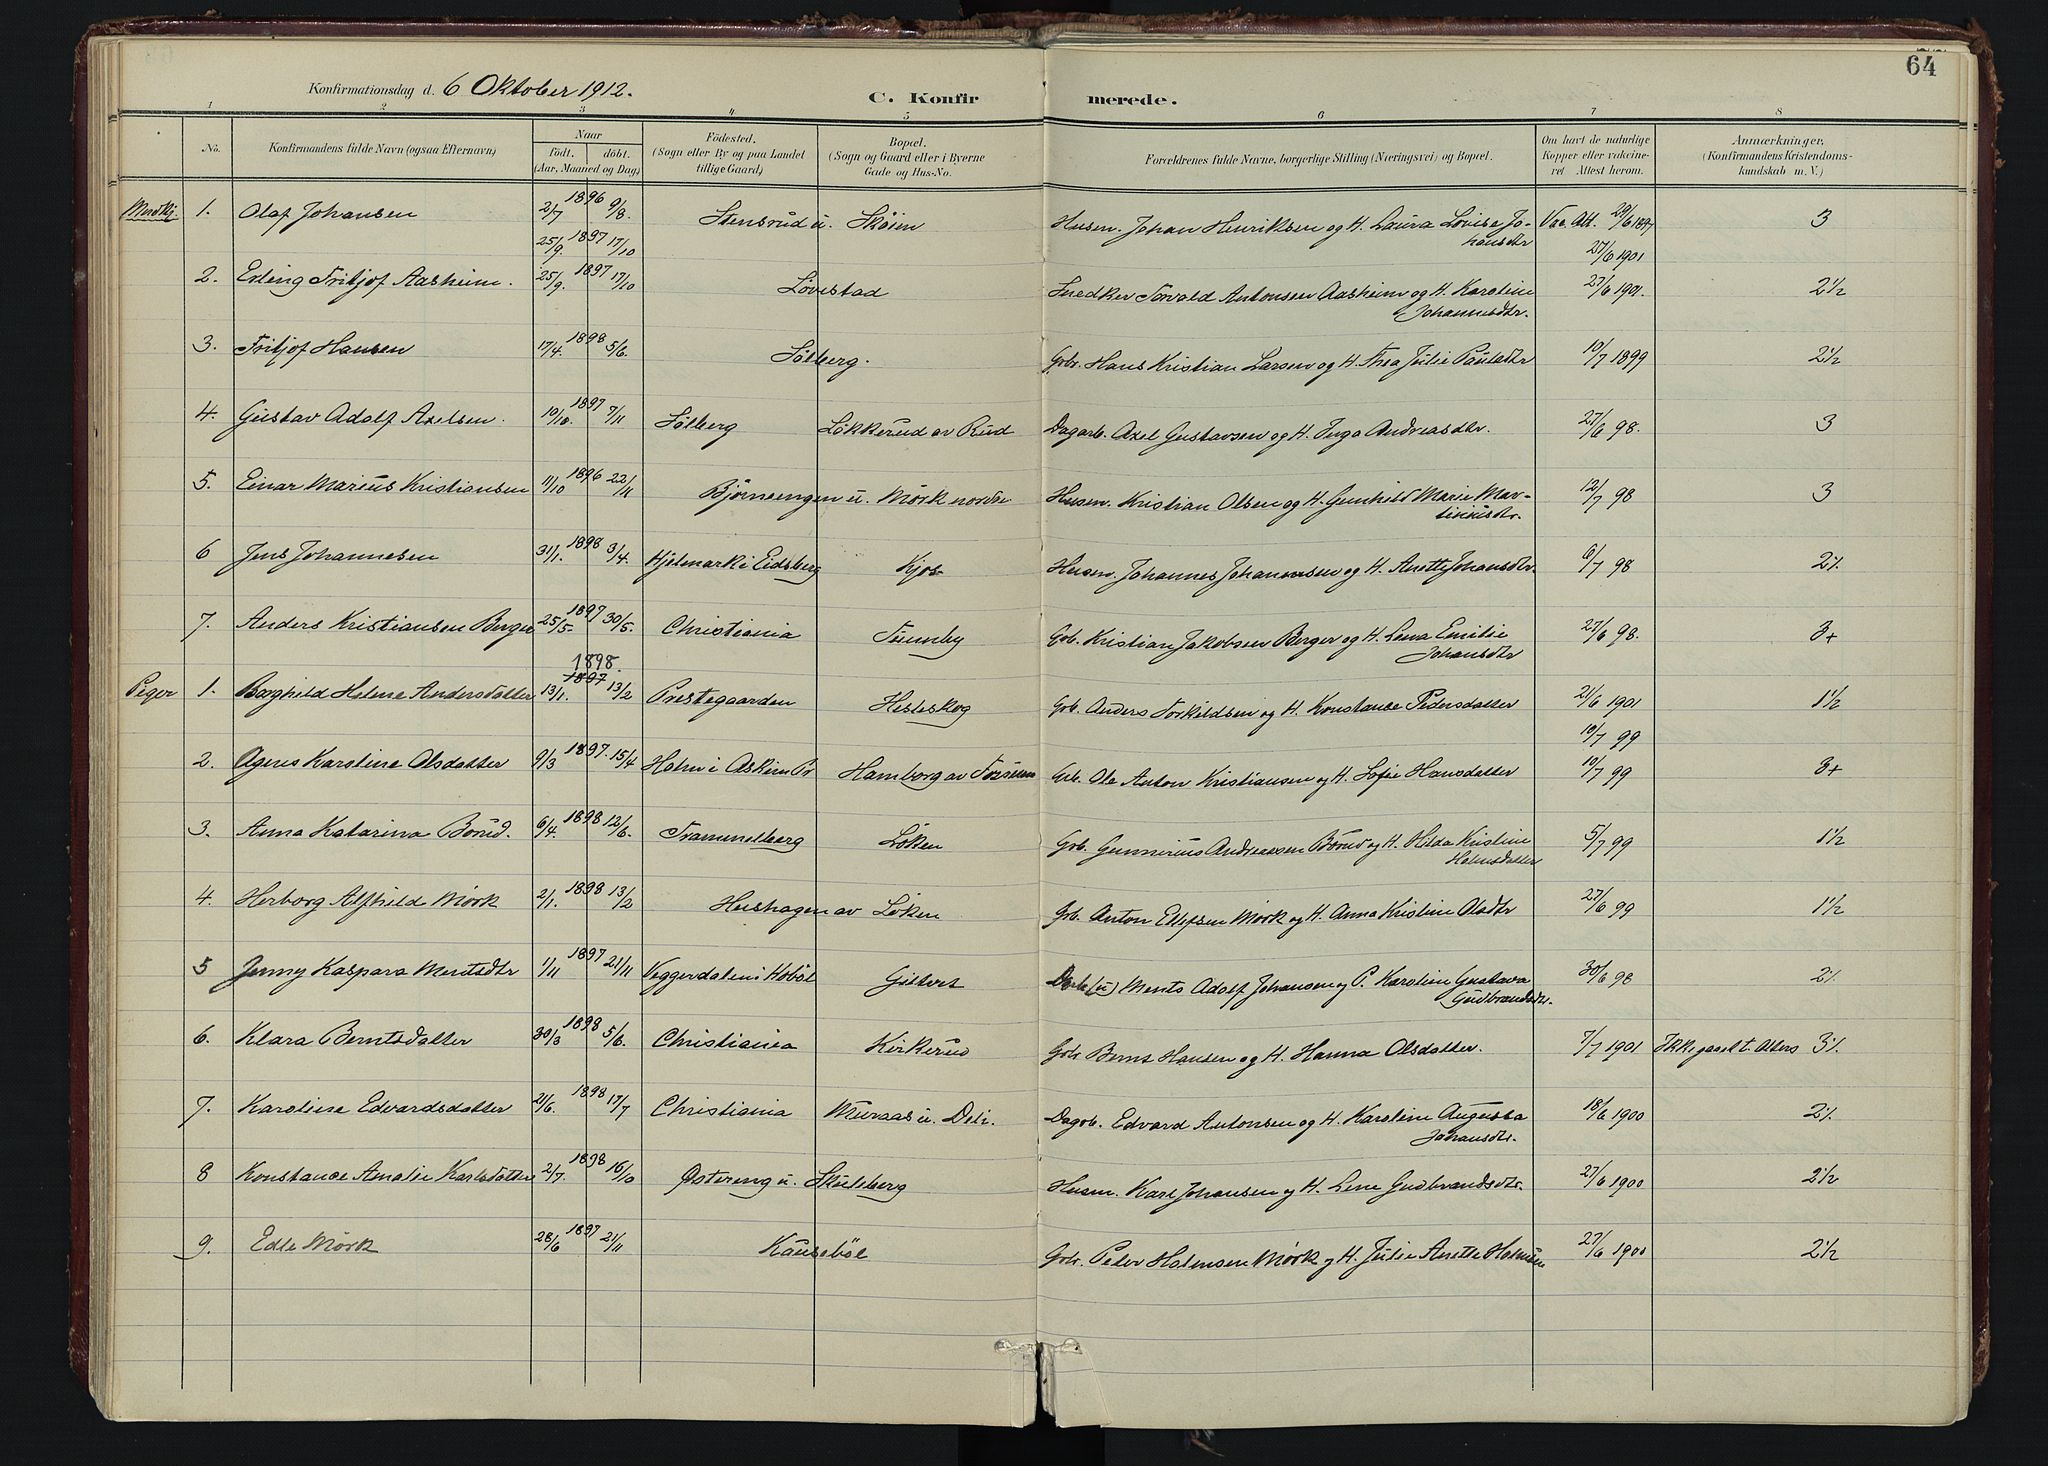 64
Konfirmationsdag d. 6 Oktober 1912.
C. Konfirmerede.
1 2 3 4 5 6 7 8
No.
Konfirmandens fulde Navn (ogsaa Efternavn)
Naar
födt. döbt.
(Aar, Maaned og Dag)
Födested.
(Sogn eller By og paa Landet
tillige Gaard)
Bopæl.
(Sogn og Gaard eller i Byerne
Gade og Hus-No.
Forældrenes fulde Navne, borgerlige Stilling (Næringsvei) og Bopæl.
Om havt de naturlige
Kopper eller vakcine-
ret. Attest herom.
Anmærkninger.
(Konfirmandens Kristendoms-
kundskab m. V.)
1. Olaf Johansen 2/7 1896 9/8. Stensrud u. Skøien Husm. Johan Henriksen og H. Laura Lovise Jo-
hansdtr Vac. Att. 29/6 1897 3
25/9. 1897 17/10 27/6 1901
2. Erling Fritjof Aasheim. 25/9. 1897 17/10 Lovestad Snedker Torvald Antonsen Aasheim og H. Karoline
Johannesdtr. 27/6 1901. 2 1/2
3. Fritjof Hansen 17/4. 1898 5/6. Solberg. Grb. Hans Kristian Larsen og H. Thea Julie Paulsdtr 10/7 1899 2 1/2
4. Gustav Adolf Axelsen. 10/10. 1897 7/11 Solberg Løkkerud av Rud Dagarb. Axel Gustavsen og H. Inga Andreasdtr. 27/6 98. 3
5. Einar Marius Kristiansen 11/10 1896 22/11 Bjørneengen u. Mørk nordre Husm. Kristian Olsen og H. Gunhild Marie Mar-
tinusdtr. 12/7 98 3
6 Jens Johannesen 31/1. 1898 3/4. Hjelmark i Eidsberg Kjos Husm. Johannes Johannesen og H. Anette Johansdtr. 6/7 98 2
7. Anders Kristiansen Berger 25/5. 1897 30/5. Christiania Tunnby Grb. Kristian Jakobsen Berger og H. Lena Emilie
Johansdtr 27/6 98. 3+
1898.
Piger 1. Borghild Helene Andersdatter 13/1. 1897 13/2 Prestegaarden Hesleskog Grb. Anders Torkildsen og H. Konstance Pedersdatter 21/6 1901 1 1/2
10/7 99
2. Agnes Karoline Olsdatter 9/3 1897. 15/4 Holm i Askim Pr Hamborg av Grb. Ole Anton Kristiansen og H. Sofie Hansdatter 10/7 99 3+
3. Anna Katarina Borud. 6/4. 1898 12/6. Trammelberg Løken Grb. Gunnerius Andreasen Borud og H. Hilda Kristine
Halmsdatter 5/7 99 1 1/2
4. Herborg Alfhild Mørk 2/1. 1898 13/2 Heshagen av Løken Grb. Anton Mørk og H. Anna Kristine Olsdtr 27/6 99 1 1/2
5 Jenny Kaspara Mentsdtr 1/11 1897 21/11 Veggerdalen i Hobøl Gistest (u) Ments Adolf Johansen og P. Karoline Gustava
Gudbrandsdtr. 30/6 98 2
6. Klara Berntsdatter 30/3 1898 5/6. Christiania Kirkerud Grb Bernt Hansen og H. Hanna Olsdatter. 7/7 1901 Ikke gaaet t. Alters 3
7. Karoline Edvardsdatter 21/6. 1898 17/7 Christiania Muraas u. Deli. Dagarb. Edvard Antonsen og H. Karoline Augusta
Johansdtr. 18/6 1900 2
8 Konstance Amalie Karlsdatter 2/7. 1898 16/10 Østereng u. Skulsberg Husm. Karl Johansen og H. Lene Gudbrandsdtr. 27/6 1900 2 1/2
9. Edle Mørk 28/6 1897 21/11 Kausebøl Grb. Peter Halmsen Mørk og H. Julie Anette 27/6 1900 2 1/2